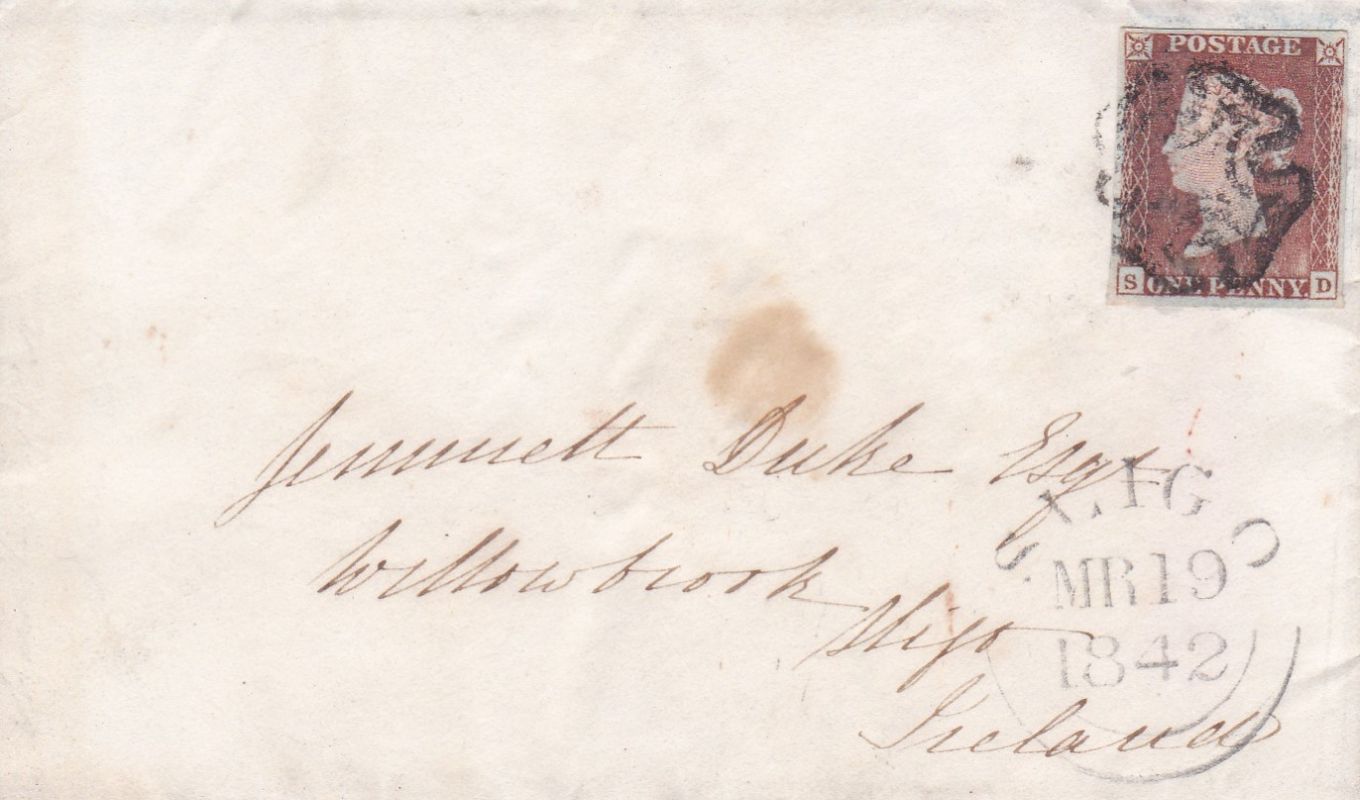 POSTAGE
S ONE PENNY. D
Jemmett Duke Esqr
Willowbrook
Sligo
Ireland
SLIGO
MR 19
1842